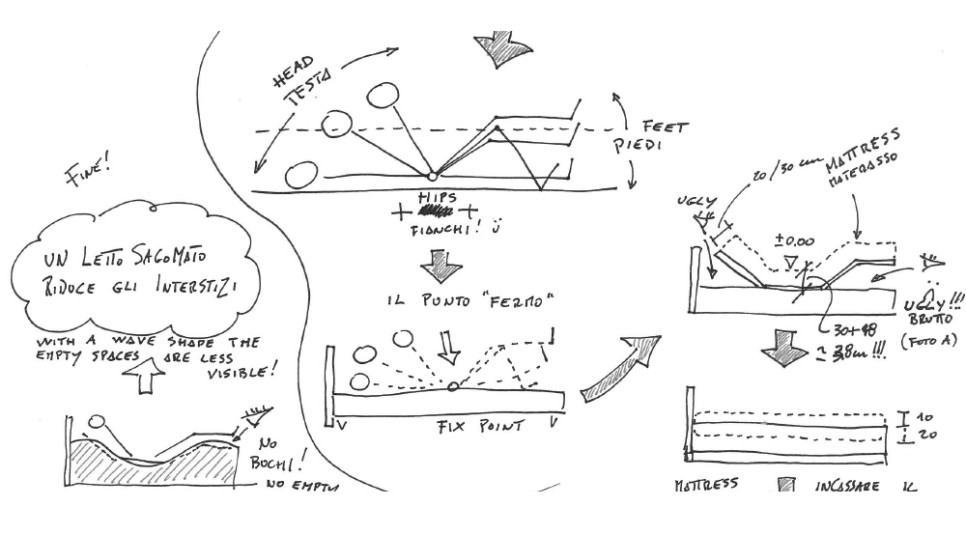 HEAD
TESTA
FEET
PIEDI
HIPS
FIANCHI!
IL PUNTO "FERMO"
FIX POINT
20/30 cm
MATTRESS
MATERASSO
UGLY
±0.00
UGLY!!!
BRUTTO
(FOTO A)
38cm!!!
10
20
MATTRESS
INCASSARE IL
FINE!
UN LETTO SAGOMATO
RIDUCE GLI INTERSTIZI
WITH A WAVE SHAPE THE
EMPTY SPACES ARE LESS
VISIBLE!
NO
BUCHI!
NO EMPTY